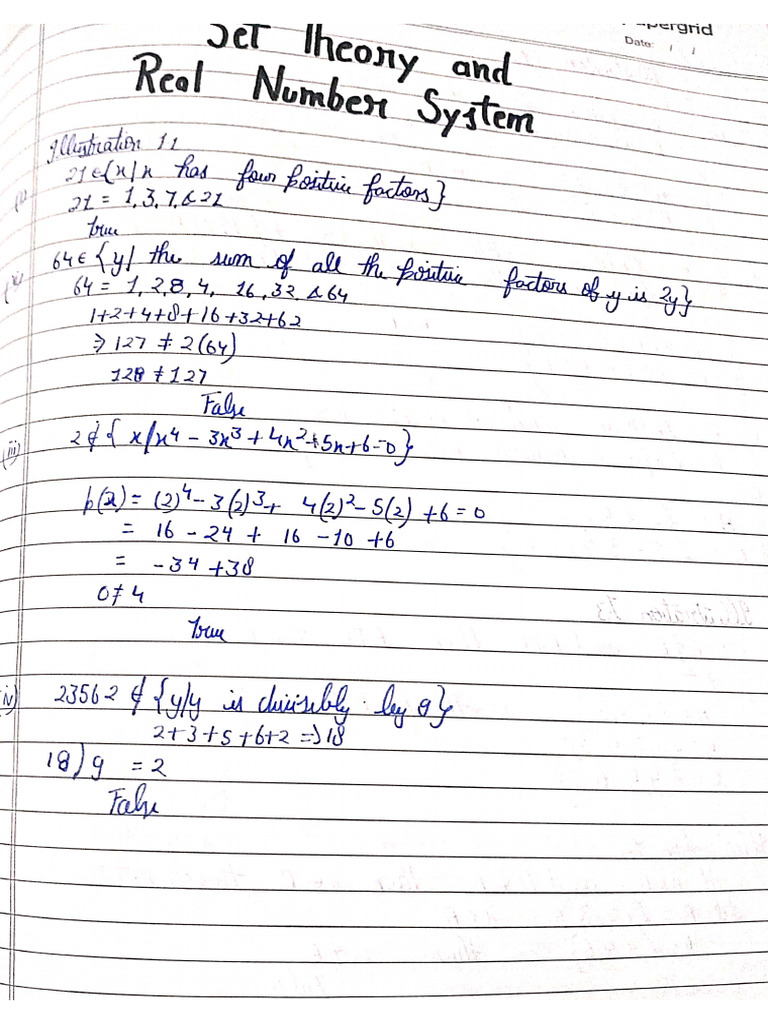 Papergrid
Date: / /
Set Theory and
Real Number System
Illustration 11
(i) 21 ∈ {x/x has four positive factors}
21 = 1, 3, 7, & 21
True
(ii) 64 ∈ {y/ the sum of all the positive factors of y is 2y}
64 = 1, 2, 8, 4, 16, 32 & 64
1+2+4+8+16+32+62
⇒ 127 ≠ 2(64)
128 ≠ 127
False
(iii) 2 ∉ { x/x⁴ - 3x³ + 4x² + 5x + 6 = 0}
p(x) = (2)⁴ - 3(2)³ + 4(2)² - 5(2) + 6 = 0
= 16 - 24 + 16 - 10 + 6
= -34 + 38
0 ≠ 4
True
(iv) 23562 ∉ {y/y is divisibly by 9}
2+3+5+6+2 => 18
18) 9 = 2
False